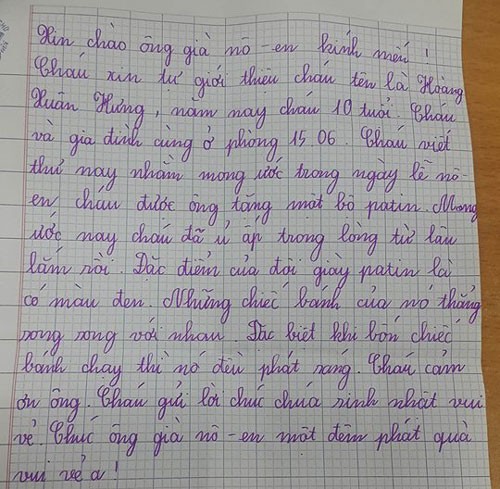 Xin chào ông già nô-en kính mến!
Cháu xin tự giới thiệu cháu tên là Hoàng
Xuân Hưng, năm nay cháu 10 tuổi. Cháu
và gia đình cùng ở phòng 15 06. Cháu viết
thư nay nhằm mong ước trong ngày lễ nô-
en cháu được ông tặng một bộ patin. Mong
ước nay cháu đã ủ ấp trong lòng từ lâu
lắm rồi. Đặc điểm của đôi giày patin là
có màu đen. Những chiếc bánh của nó thẳng
song song với nhau. Đặc biệt khi bốn chiếc
bánh chạy thì nó đều phát sáng. Cháu cảm
ơn ông. Cháu gửi lời chúc chúa sinh nhật vui
vẻ. Chúc ông già nô-en một đêm phát quà
vui vẻ ạ!